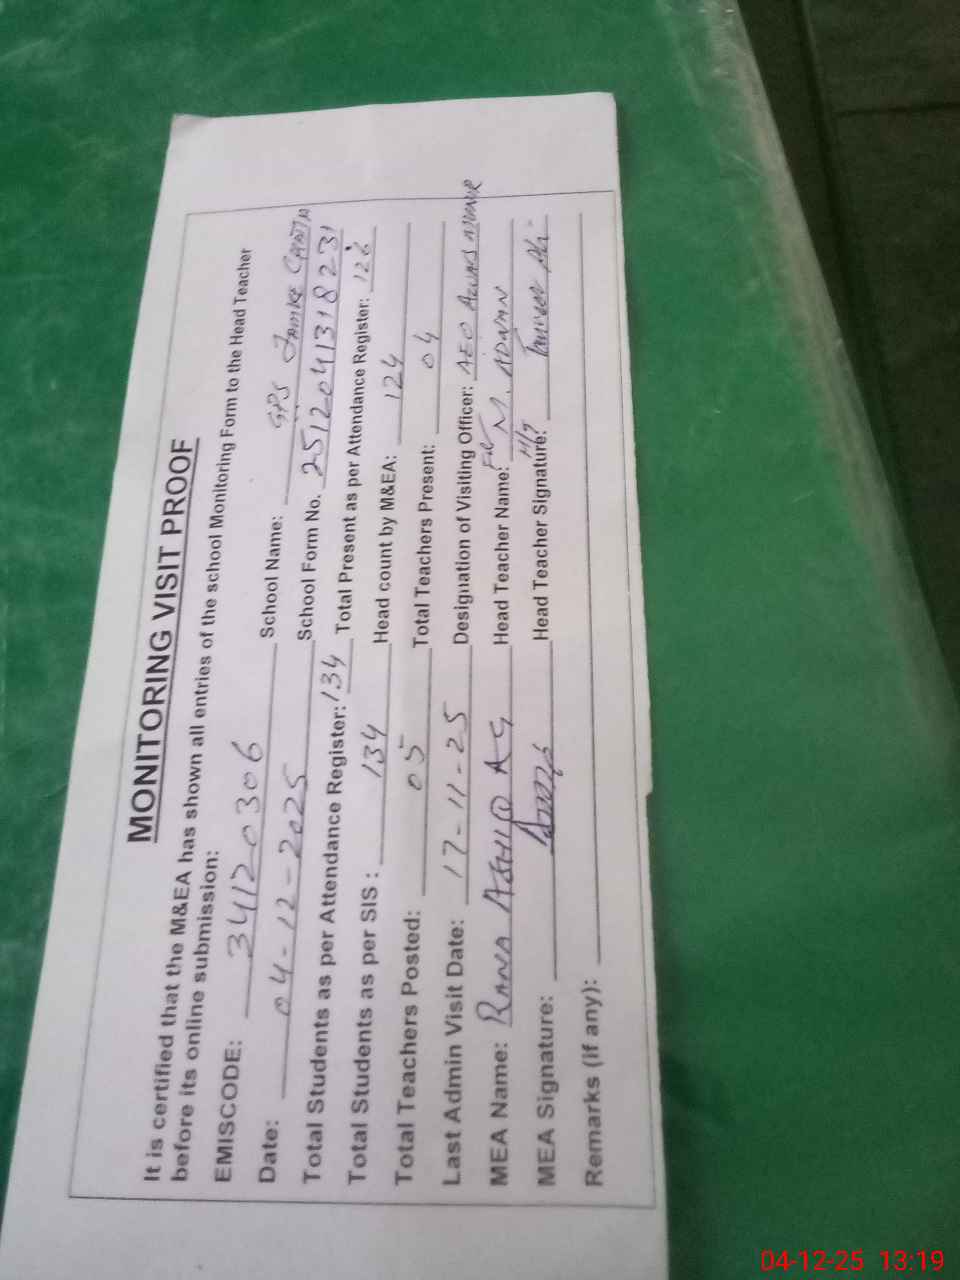 MONITORING VISIT PROOF
It is certified that the M&EA has shown all entries of the school Monitoring Form to the Head Teacher
before its online submission:
EMISCODE: 34120306 School Name: GPS
Date: 04-12-2025 School Form No. 2512041318231
Total Students as per Attendance Register: 134 Total Present as per Attendance Register: 126
Total Students as per SIS: 134 Head count by M&EA: 124
Total Teachers Posted: 05 Total Teachers Present: 04
Last Admin Visit Date: 17-11-25 Designation of Visiting Officer: AEO
MEA Name: RANA Head Teacher Name: M. ADNAN
MEA Signature: Head Teacher Signature:
Remarks (if any):
04-12-25 13:19